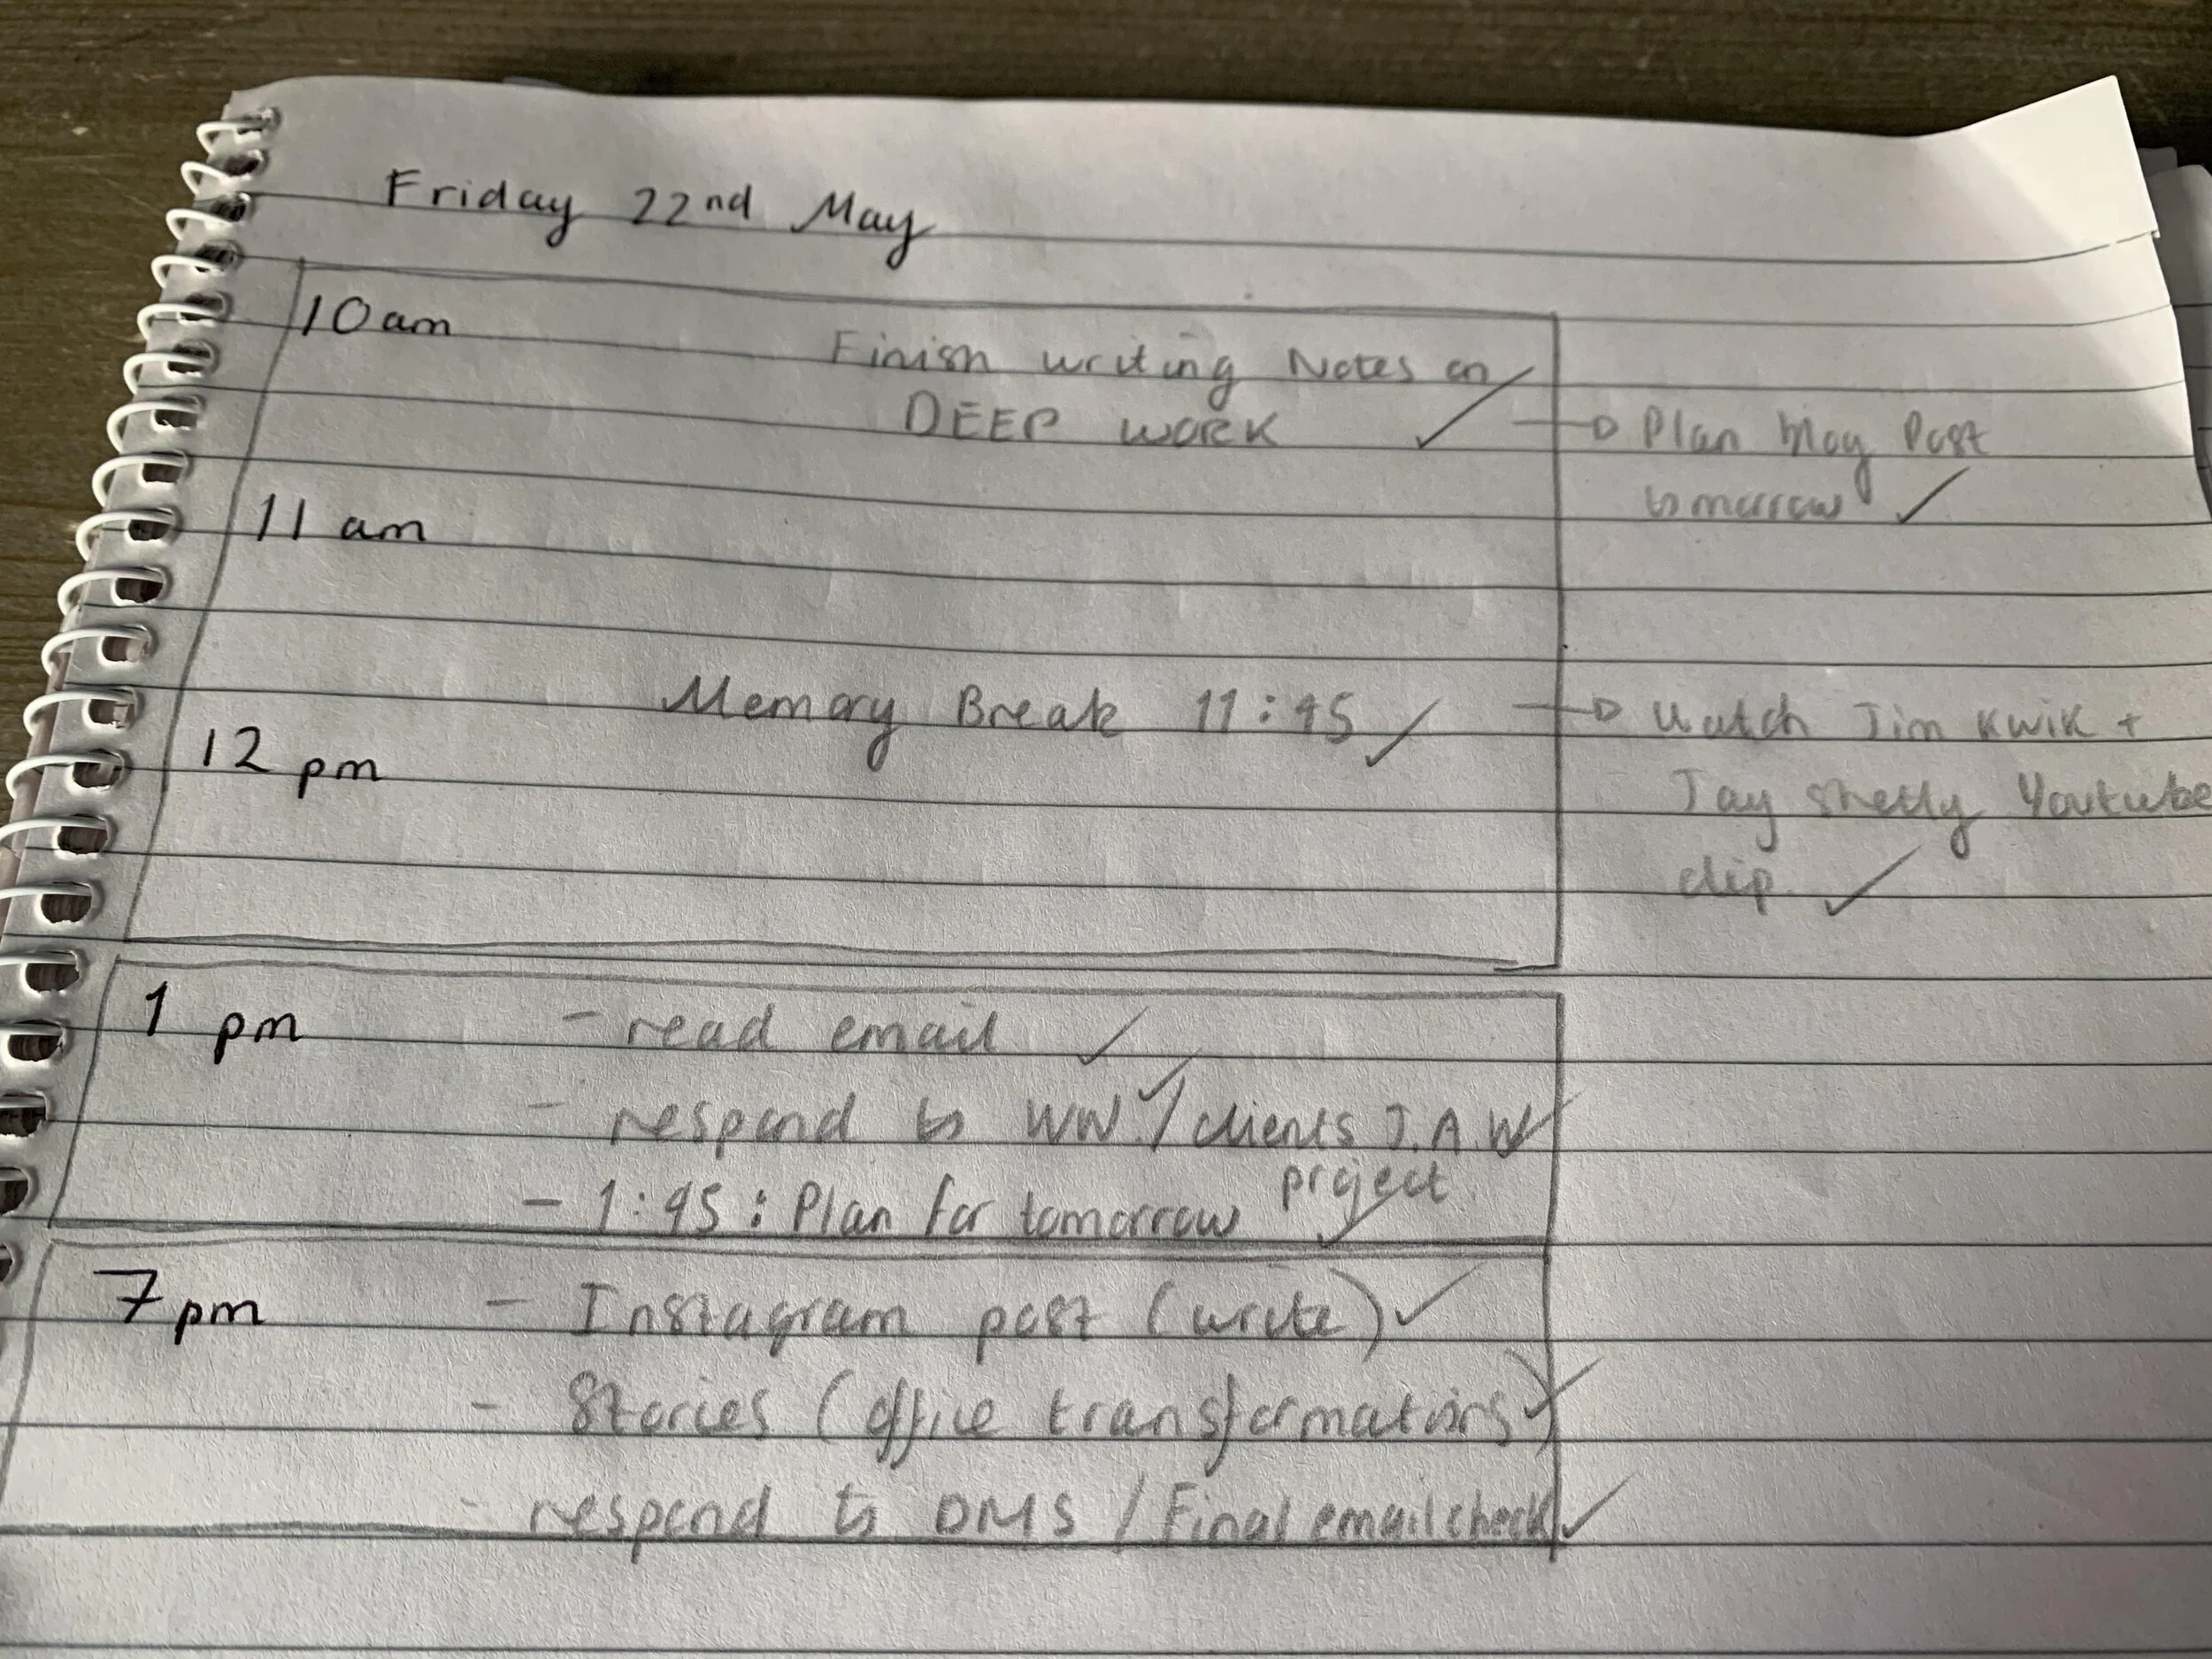 Friday 22nd May
10 am
Finish writing Notes on
DEEP WORK
Plan May Post
tomorrow
11 am
Memory Break 11:45
Watch Jim Kwik +
Jay Shetty Youtube
clip.
12 pm
1 pm
- read email
- respond to WW. / clients J.A.W
project
- 1:45 : Plan for tomorrow
7 pm
- Instagram post (write)
- Stories (office transformations)
- respond to DMS / Final email check